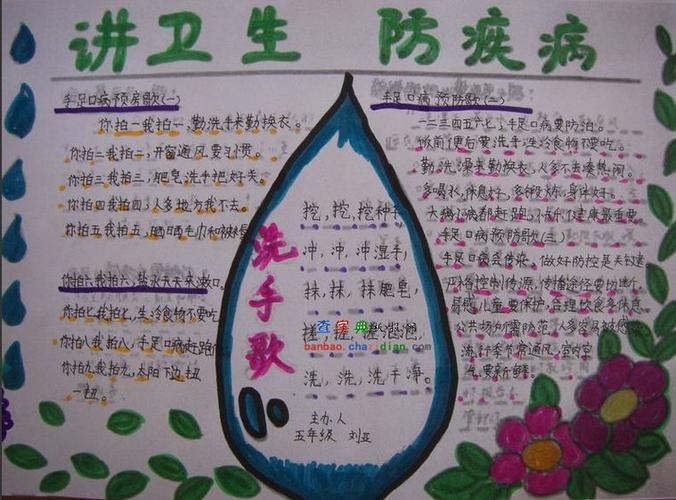 讲卫生 防疾病
手足口病预防歌(一)
你拍一我拍一,勤洗手来勤换衣。
你拍二我拍二,开窗通风要习惯。
你拍三我拍三,肥皂洗手把好关。
你拍四我拍四,人多地方我不去。
你拍五我拍五,晒晒毛巾和被褥
你拍六我拍六,盐水天天来漱口。
你拍七我拍七,生冷食物不要吃
你拍八我拍八,手足口病赶跑
你拍九我拍九,太阳下边扭
一扭。
洗手歌
挖,挖,挖种子
冲,冲,冲湿手,
抹,抹,抹肥皂,
搓,搓,搓泡泡,
洗,洗,洗干净。
查字典
banbao.chazidian.com
主办人
五年级 刘亚
手足口病预防歌(二)
一二三四五六七,手足口病要防治。
饭前便后要洗手,生冷食物不要吃。
勤洗澡来勤换衣,人多不去凑热闹。
多喝水,休息好,多锻炼,身体好。
大病小病都赶跑,健康最重要
手足口病预防歌(三)
手足口病会传染,做好防控是关键
严格控制传源,传播途径要切断
易感儿童要保护,合理饮食多休息
公共场所需防范,人多容易被感染
流行季节常通风,室内空
气要新鲜